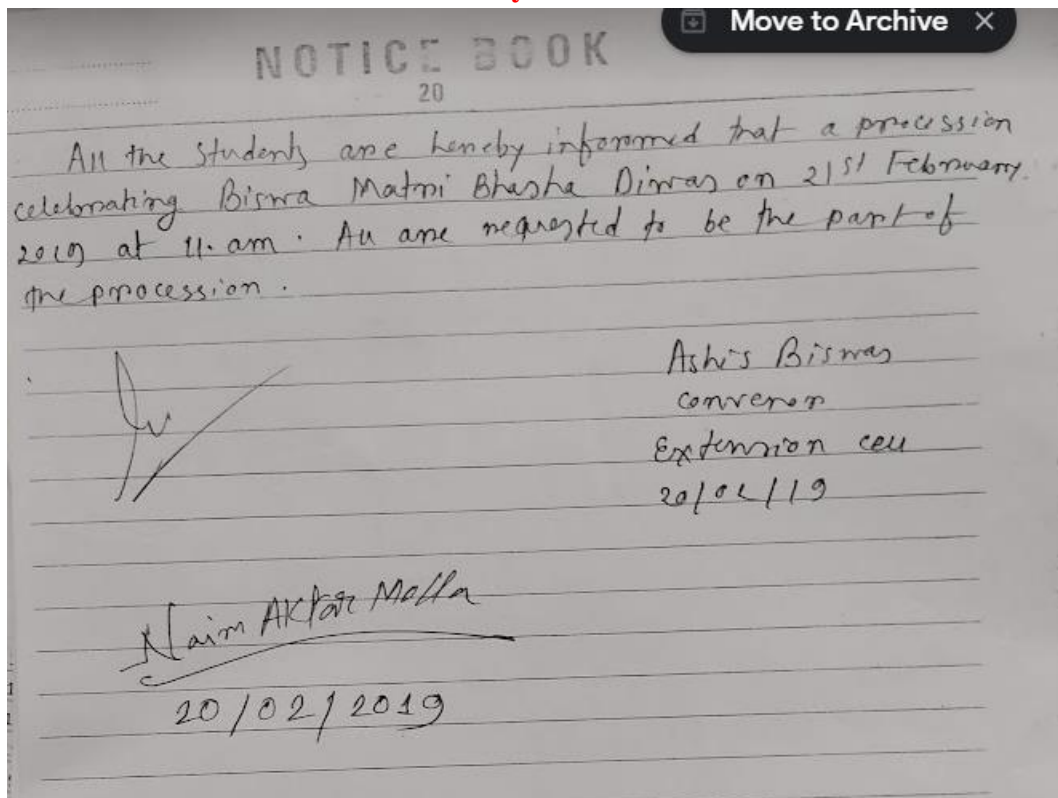 Move to Archive ×
NOTICE BOOK
20
All the Students are hereby informed that a procession
celebrating Biswa Matri Bhasha Diwas on 21st February
2019 at 11. am. All are requested to be the part of
the procession.
Ashis Biswas
convenor
Extension cell
20/02/19
Naim AKtar Molla
20/02/2019